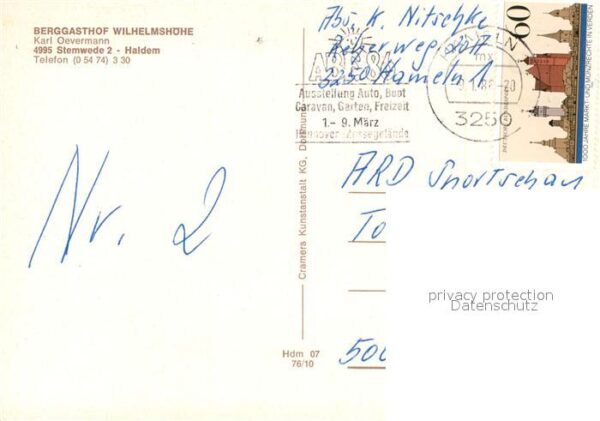 BERGGASTHOF WILHELMSHÖHE
Karl Oevermann
4995 Stemwede 2 - Haldem
Telefon (0 54 74) 3 30
Abs. K. Nitschke
3250 Hameln 1
Ausstellung Auto, Boot
Caravan, Garten, Freizeit
1.- 9. März
3250
60
1000 JAHRE MARKT- UND MÜNZRECHTE IN VERDEN
Nr. 2
ARD Sportschau
To
500
Cramers Kunstanstalt KG, Dortmund
Hdm 07
76/10
privacy protection
Datenschutz